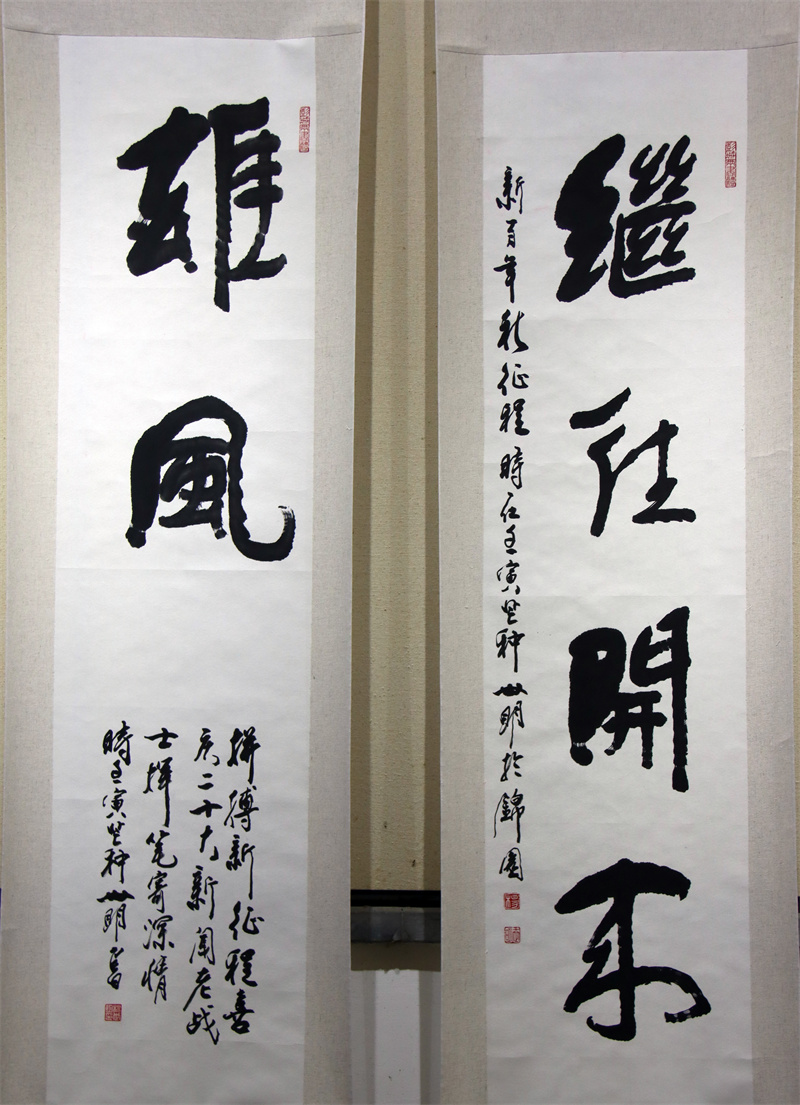 繼往開來
新百年新征程 時在壬寅芒种 明於錦園
雄風
拼搏新征程喜
庆二十大新闻老战
士揮笔寄深情
時壬寅芒种 明書